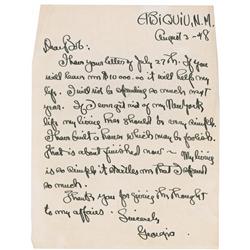 ABIQUIU, N.M.
August 2 - 48
Dear Bob:
I have your letter of July 27th. If you
will leave me $10,000. as it will help my
life. I will not be spending so much next
year. If I ever get rid of my New York
life my living here should be very simple.
I have built a house which may be foolish
that is about finished now — My living
is so simple it startles me that I spend
so much.
Thank you for giving the thought
to my affairs. Sincerely
Georgia